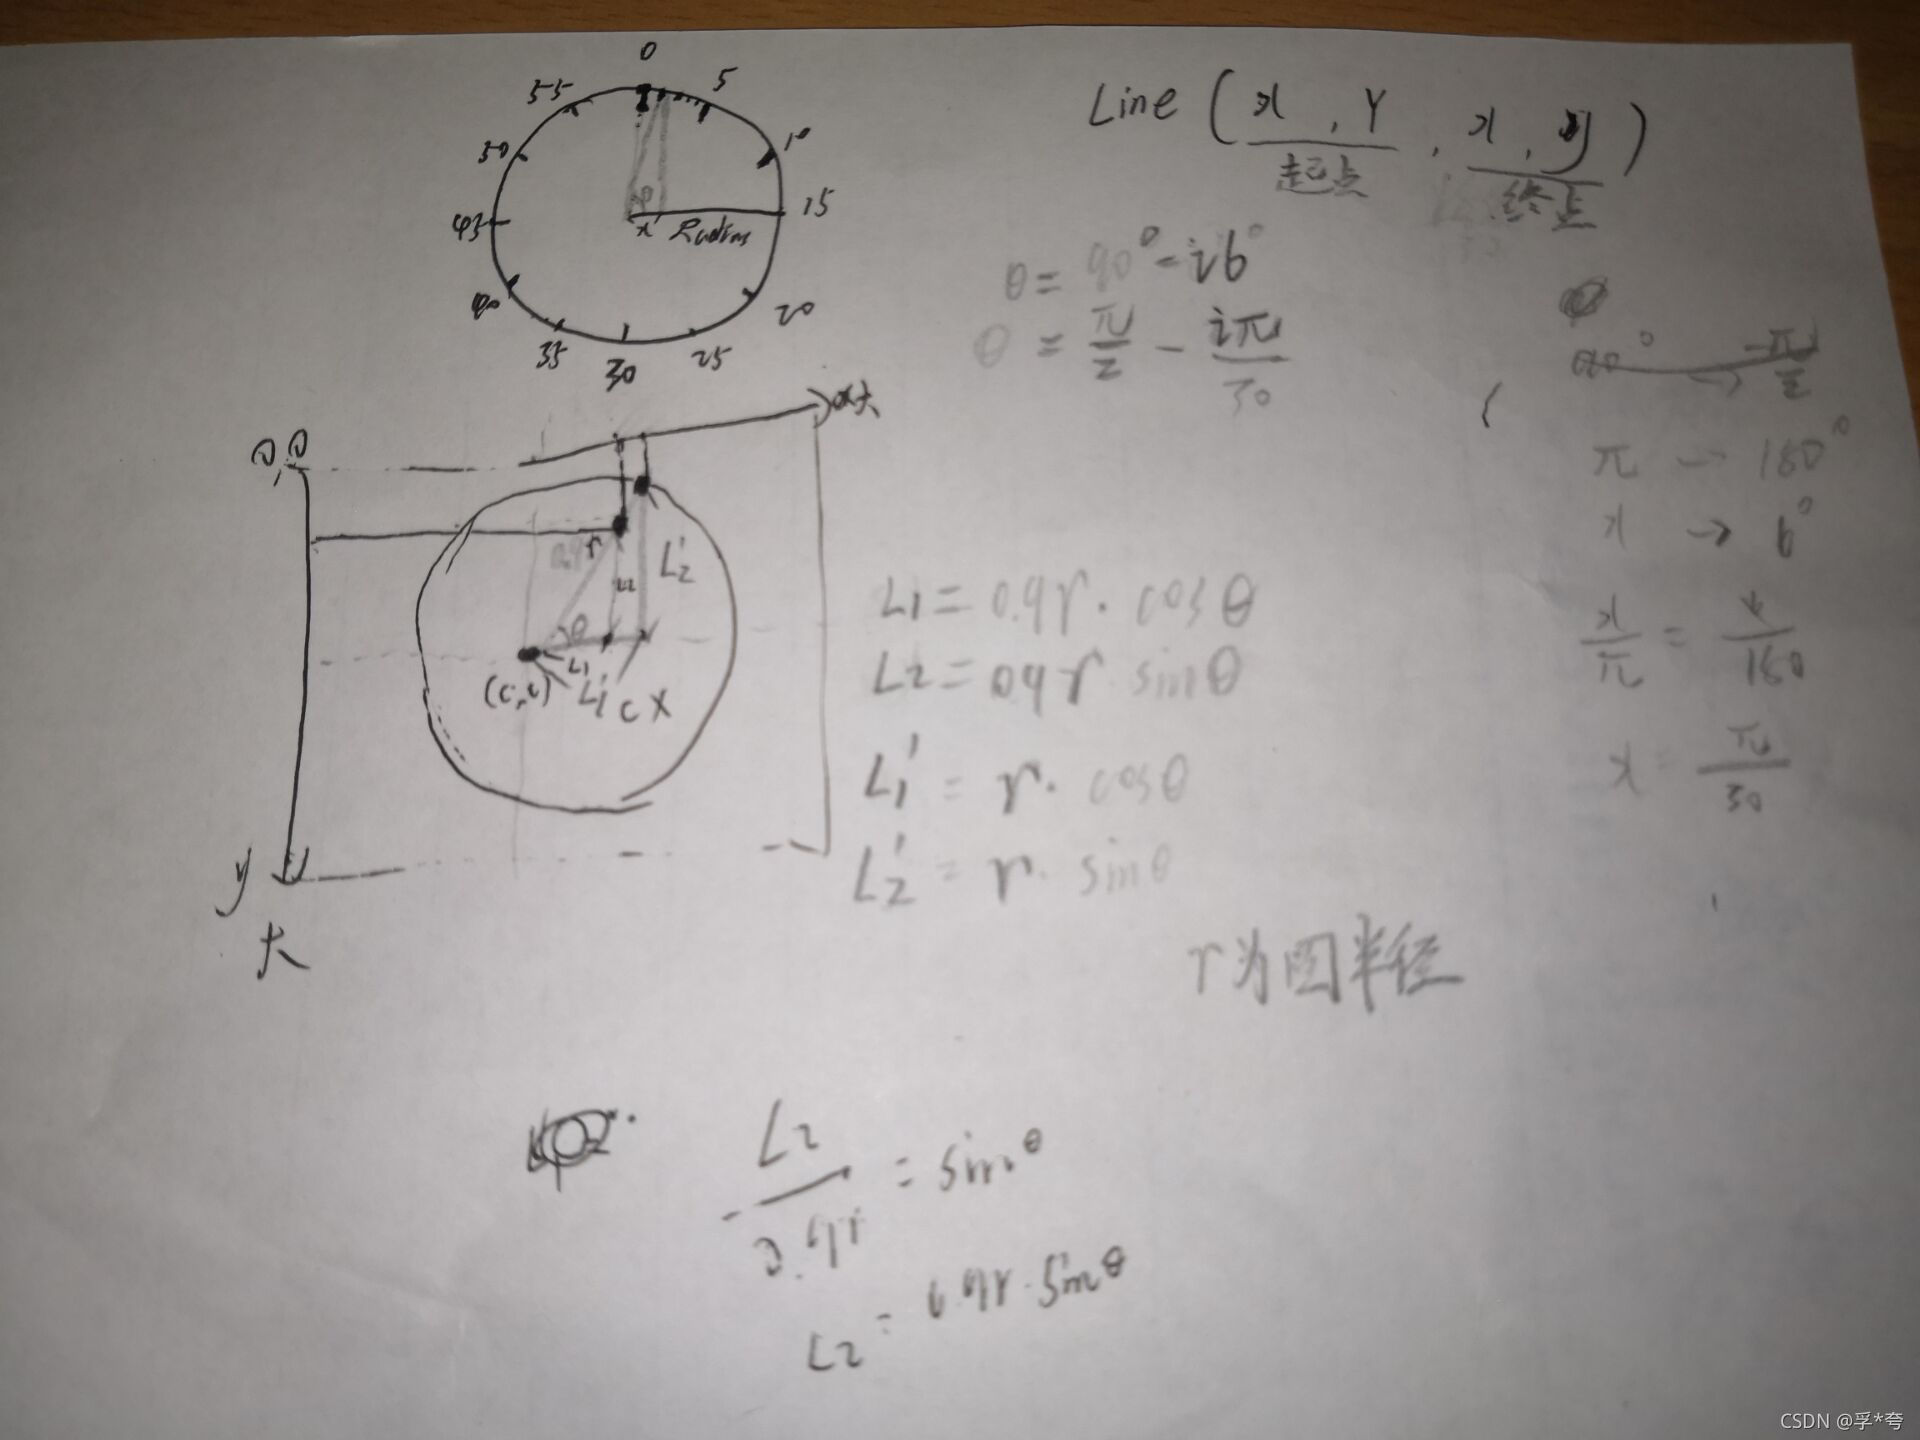 0
5
10
15
20
25
30
35
40
45
50
55
x
Line ( x , Y , x , y )
起点
终点
θ = 90° - i6°
θ = π/2 - iπ/30
-π/2
π → 180°
x → 6°
x/π = 6/180
x = π/30
0,0
x大
y
大
0.9r
L2
L2'
θ
L1
L1'
(c,c)
L1 = 0.9r · cosθ
L2 = 0.9r sinθ
L1' = r · cosθ
L2' = r · sinθ
r为圆半径
L2/0.9r = sinθ
L2 = 0.9r · sinθ
CSDN @孚*夸